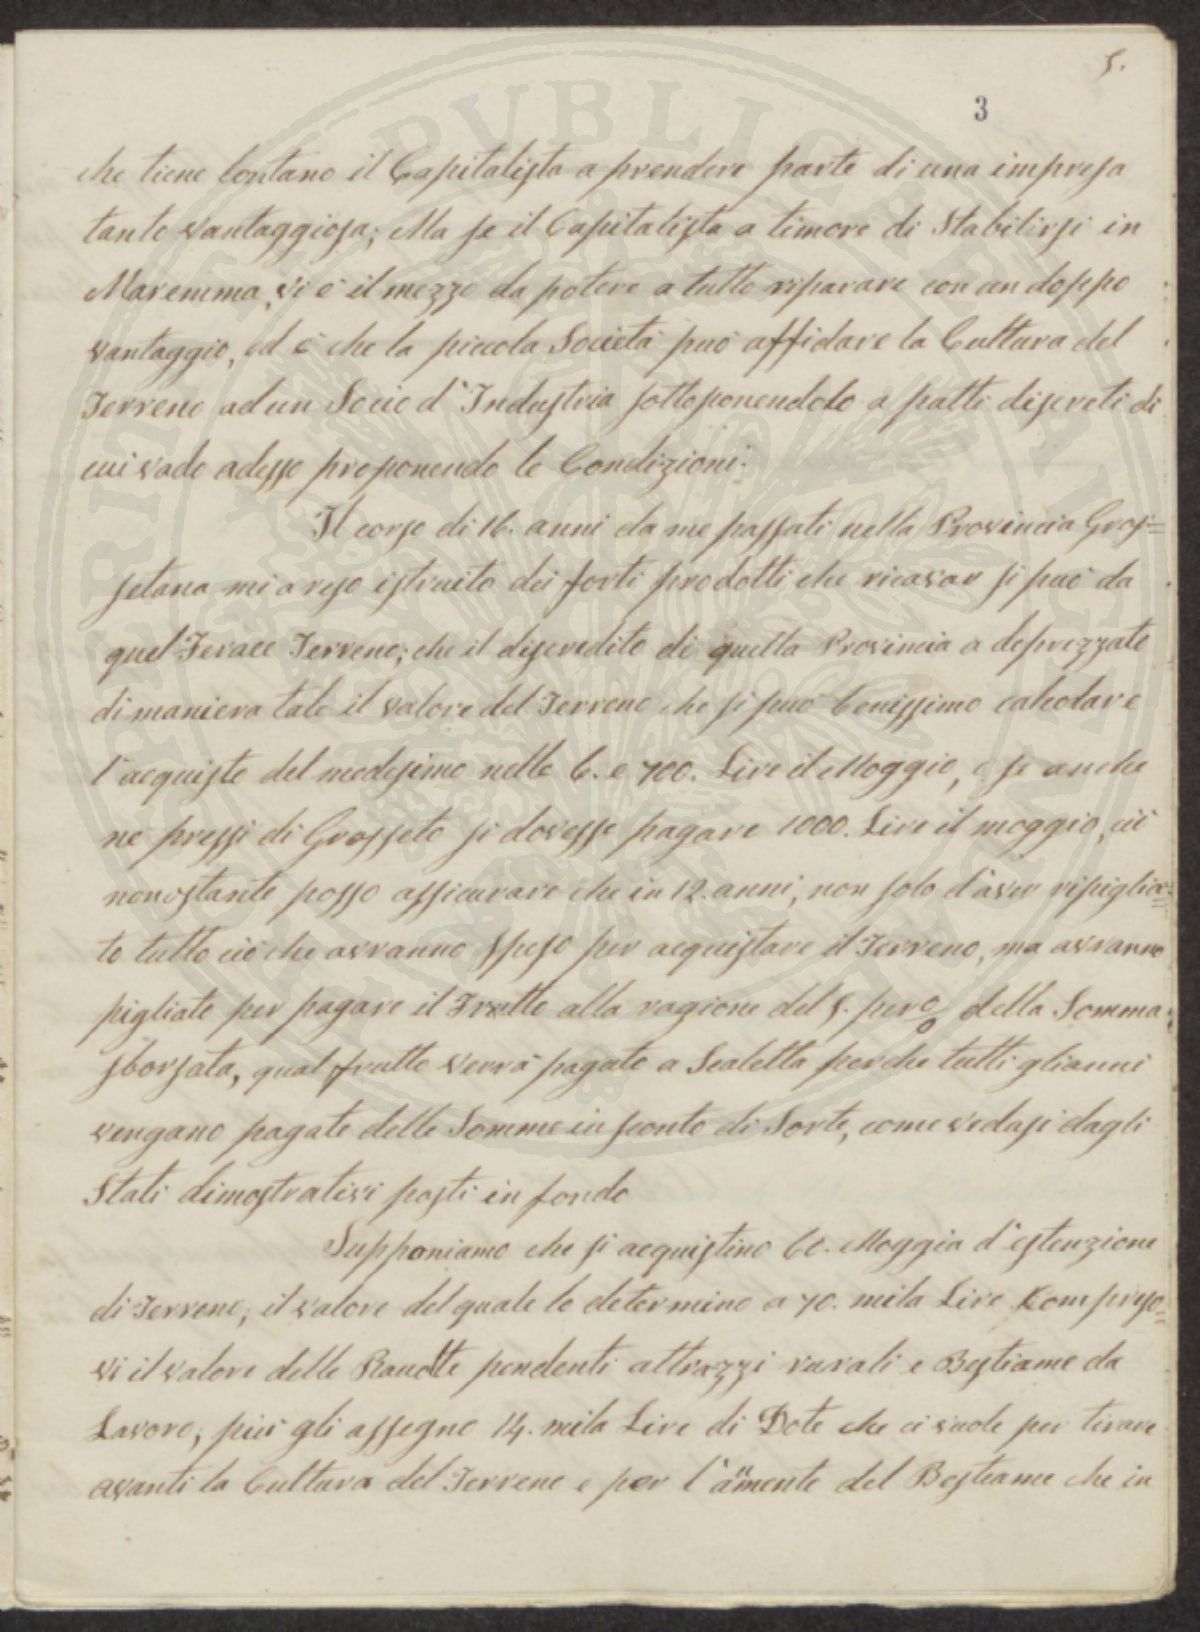 5.
3
che tiene lontano il Capitalista a prendere parte di una impresa
tanto vantaggiosa; Ma se il Capitalista a timore di Stabilirsi in
Maremma, vi è il mezzo da potere a tutto riparare con un doppo
vantaggio, ed è che la piccola Società può affidare la Cultura del
Terreno ad un Socio d'Industria sottoponendolo a patti discreti di
cui vado adesso proponendo le Condizioni.
Il corso di 16. anni da me passati nella Provincia Gros=
setana mi a reso istruito dei forti prodotti che ricavar si può da
quel Ferace Terreno; che il discredito di quella Provincia a deprezzato
di maniera tale il valore del Terreno che si può benissimo calcolare
l'acquisto del medesimo nelle 6. e 700. Lire il Moggio, e se anche
nè pressi di Grosseto si dovesse pagare 1000. Lire il moggio, ciò
nonostante posso assicurare che in 12. anni, non solo d'aver ripiglia=
to tutto ciò che avranno speso per acquistare il Terreno, ma avranno
pigliato per pagare il Frutto alla ragione del 5. per % della Somma
sborsata, qual frutto verrà pagato a Scaletta perche tutti gli anni
vengano pagate delle Somme in sconto di Sorte, come vedasi dagli
Stati dimostrativi posti in fondo
Supponiamo che si acquistino 60. Moggia d'estenzione
di Terreno, il valore del quale lo determino a 70. mila Lire Kompreso=
vi il valore delle Racolte pendenti attrazzi rurali e Bestiame da
Lavoro; più gli assegno 14. mila Lire di Dote che ci vuole per tirare
avanti la Cultura del Terreno e per l'aumento del Bestiame che in